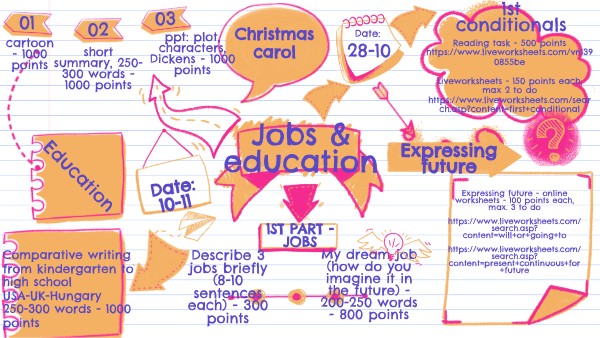 01
cartoon
- 1000
points
02
short
summary, 250-
300 words -
1000 points
03
ppt: plot,
characters,
Dickens - 1000
points
Christmas
carol
Date:
28-10
1st
conditionals
Reading task - 500 points
0855be
Liveworksheets - 150 points each,
max 2 to do
https://www.liveworksheets.com/sear
ch.asp?content=first+conditional
Education
Date:
10-11
Jobs &
education
Expressing
future
?
1ST PART -
JOBS
Expressing future - online
worksheets - 100 points each,
max. 3 to do
https://www.liveworksheets.com/
search.asp?
content=will+or+going+to
https://www.liveworksheets.com/
search.asp?
content=present+continuous+for
+future
Comparative writing
from kindergarten to
high school
USA-UK-Hungary
250-300 words - 1000
points
Describe 3
jobs briefly
(8-10
sentences
each) - 300
points
My dream job
(how do you
imagine it in
the future) -
200-250 words
- 800 points